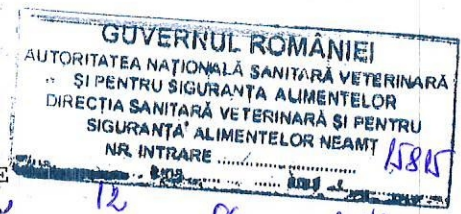 GUVERNUL ROMÂNIEI
AUTORITATEA NAȚIONALĂ SANITARĂ VETERINARĂ
ȘI PENTRU SIGURANȚA ALIMENTELOR
DIRECȚIA SANITARĂ VETERINARĂ ȘI PENTRU
SIGURANȚA ALIMENTELOR NEAMȚ
NR. INTRARE ................ 15815
E
12